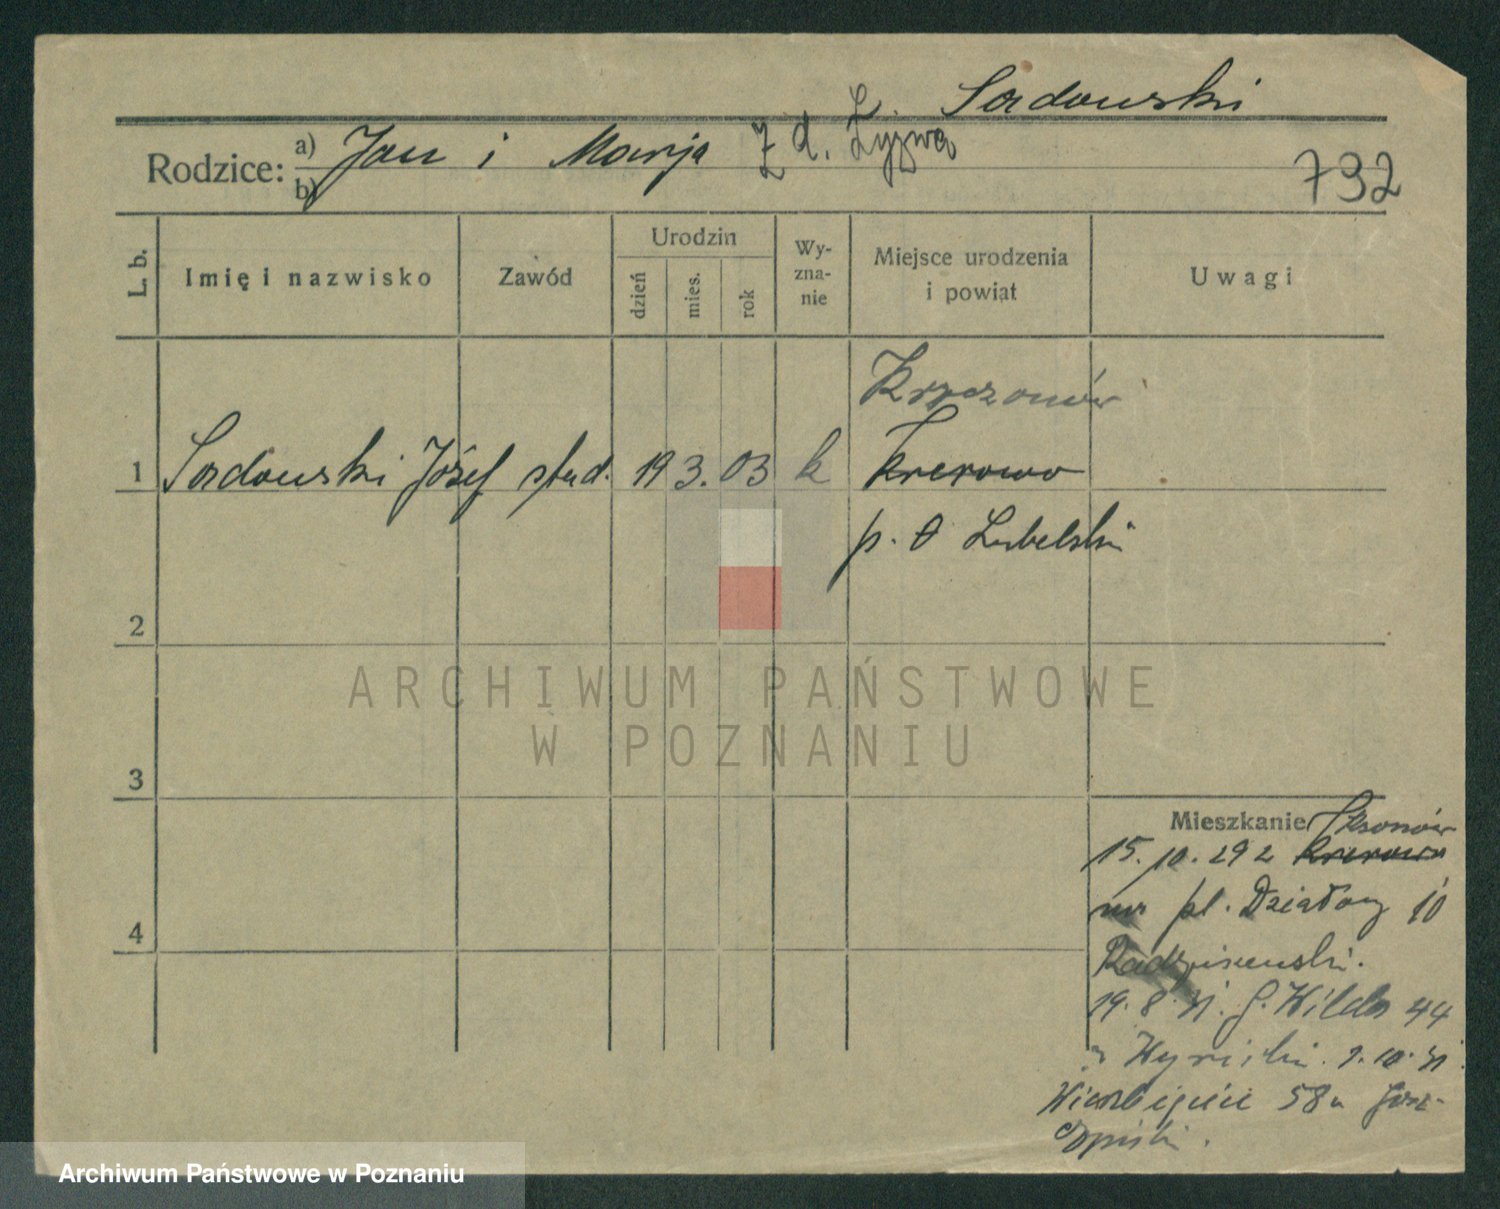 Sadowski
Rodzice: a) Jan i Marja z d. Łyjwa
b)
792
L. b. Imię i nazwisko Zawód Urodzin Wyznanie Miejsce urodzenia i powiat Uwagi
dzień mies. rok
Krzczonów
1 Sadowski Józef stud. 19 3. 03 k Krerowo
p. Lubelski
2
3
4
Mieszkanie
15. 10. 29 z Krerowo
pl. Działowy 10
Radziszewski.
19. 8. 31. G. Wilda 44
9. 10. 31.
Wierzbięcice 58
ARCHIWUM PAŃSTWOWE
W POZNANIU
Archiwum Państwowe w Poznaniu